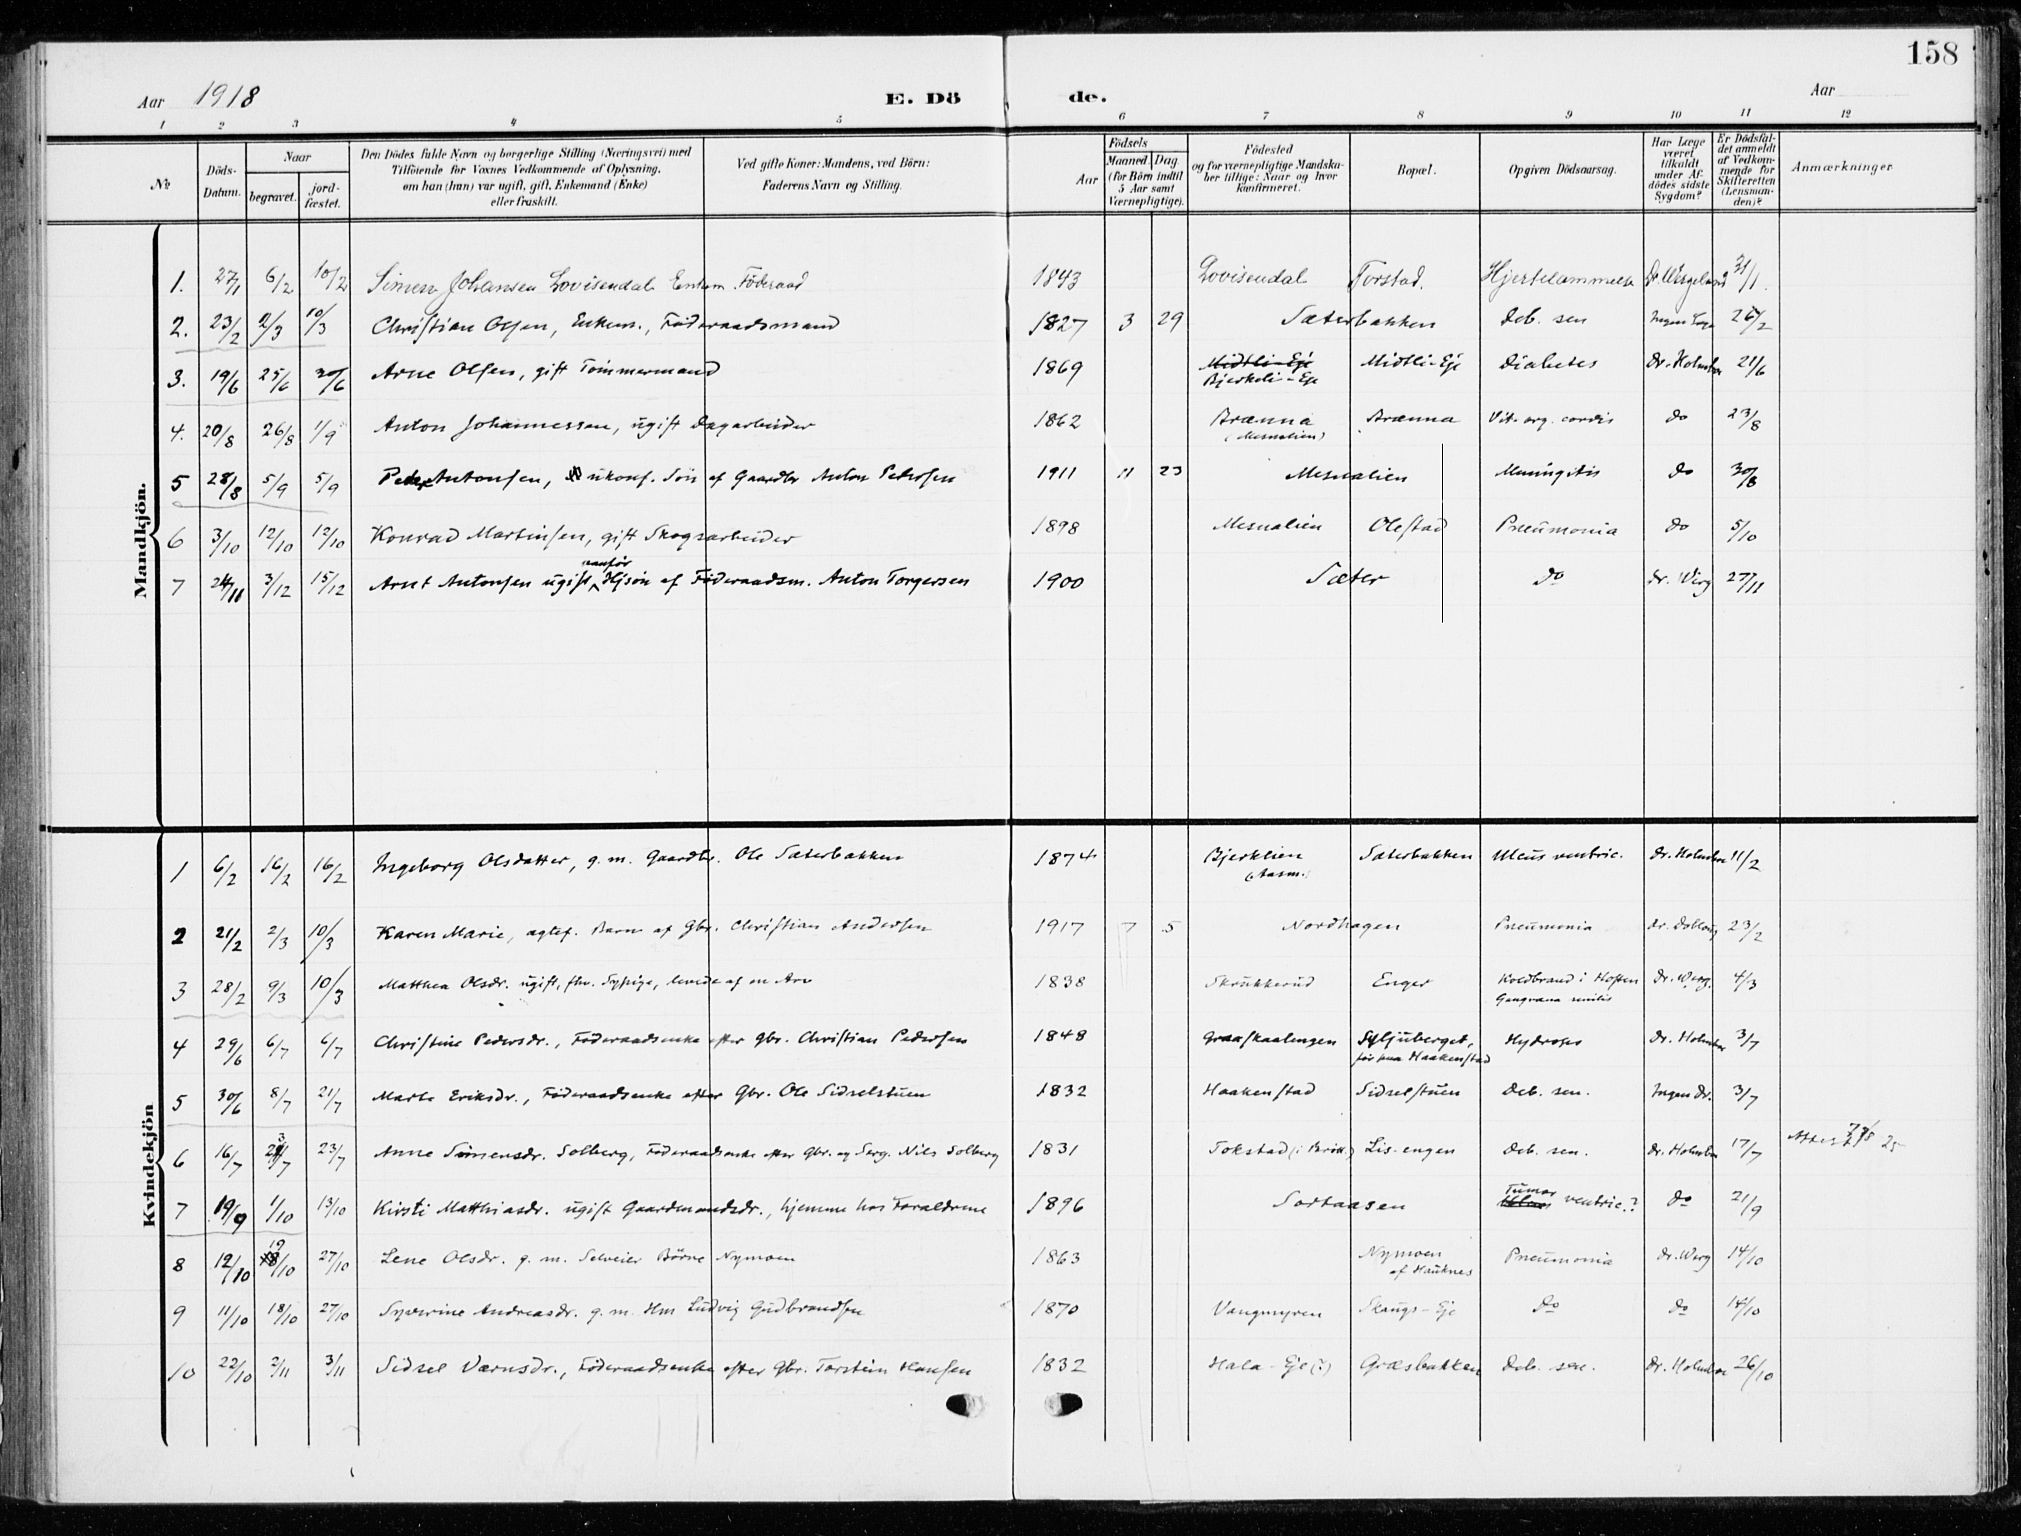 158
Aar 1918 E. Dö de. Aar
1 2 3 4 5 6 7 8 9 10 11 12
No
Döds-Datum.
Naar
begravet. jord-fæstet.
Den Dödes fulde Navn og borgerlige Stilling (Næringsvei) med
Tilföiende for Voxnes Vedkommende af Oplysning,
om han (hun) var ugift, gift, Enkemand (Enke)
eller fraskilt.
Ved gifte Koner: Mandens, ved Börn:
Faderens Navn og Stilling.
Födsels
Aar
Maaned. Dag.
(for Börn indtil
5 Aar samt
Værnepligtige).
Födested
og for værnepligtige Mandska-
ber tillige: Naar og hvor
konfirmeret.
Bopæl.
Opgiven Dödsaarsag.
Har Læge
været
tilkaldt
under Af-
dödes sidste
Sygdom?
Er Dödsfal-
det anmeldt
af Vedkom-
mende for
Skifteretten
(Lensman-
den)?
Anmærkninger
Mandkjön.
1. 27/1 6/2 10/2 Simen Johansen Lovisendal Enkem. Föderaad 1843 Lovisendal Torstad. Hjertelammelse Dr. Wergeland 31/1.
2. 23/2 2/3 10/3 Christian Olsen, Enkem., Föderaadsmand 1827 3 29 Sæterbakken Deb. sen Ingen Læge 26/2
3. 19/6 25/6 30/6 Arne Olsen, gift Tömmermand 1869 Midtli-Eje Midtli-Eje Diabetes Dr. Holmboe 21/6
Bjerkeli-Eje
4. 20/8 26/8 1/9 Anton Johannessen, ugift Dagarbeider 1862 Brænna Brænna Vit. org. cordis do 23/8
(Mesnalien)
5 28/8 5/9 5/9 Peder Antonsen, ukonf. Sön af Gaardbr Anton Pedersen 1911 11 23 Mesnalien Meningitis do 30/8
6 3/10 12/10 12/10 Konrad Martinsen, gift Skogsarbeider 1898 Mesnalien Olestad Pneumonia do 5/10
7 24/11 3/12 15/12 Arnt Antonsen ugift vanför Hjsön af Föderaadsm. Anton Torgersen 1900 Sæter do Dr. Werg 27/11
Kvindekjön
1 6/2 16/2 16/2 Ingeborg Olsdatter, g. m. Gaardbr. Ole Sæterbakken 1874 Bjerklien Sæterbakken Ulcus ventric. Dr. Holmboe 11/2
(Aasm.)
2 21/2 2/3 10/3 Karen Marie, ægtef. Barn af Gbr. Christian Andersen 1917 7 5 Nordhagen Pneumonia Dr. Dobloug 23/2
3 28/2 9/3 10/3 Matthea Olsdr. ugift, fhv. Sypige, levede af en Arv 1838 Skrukkerud Enger Koldbrand i Hoften Dr. Werg. 4/3
Gangræna senilis
4 29/6 6/7 6/7 Christine Pedersdr., Föderaadsenke efter Gbr. Christian Pedersen 1848 Graaskaalengen Syljuberget, Hydrops Dr. Holmboe 3/7
för paa Haakenstad
5 30/6 8/7 21/7 Marte Eriksdr., Föderaadsenke efter Gbr. Ole Sidselstuen 1832 Haakenstad Sidselstuen Deb. sen. Ingen Dr. 3/7
6 16/7 23/7 23/7 Anne Simensdr. Solberg, Föderaadsenke efter Gbr. og Serg. Nils Solberg 1831 Tokstad (i Brött.) Lis-engen Deb. sen. Dr. Holmboe 17/7 Attest 25
7 19/9 1/10 13/10 Kirsti Matthiasdr. ugift Gaardmandsdr., hjemme hos Forældrene 1896 Sortaasen Tumor ventric.? do 21/9
8 12/10 19/10 27/10 Lene Olsdr. g. m. Selveier Börre Nymoen 1863 Nymoen Pneumonia Dr. Werg 14/10
af Hauknes
9 11/10 18/10 27/10 Syverine Andreasdr. g. m. Hm Ludvig Gudbrandsen 1870 Vangmyren Skaugs-Eje do do 14/10
10 22/10 2/11 3/11 SidselVærnsdr., Föderaadsenke efter Gbr. Torstein Hansen 1832 Hala-Eje (?) Græsbakken Deb. sen. Dr. Holmboe 26/10